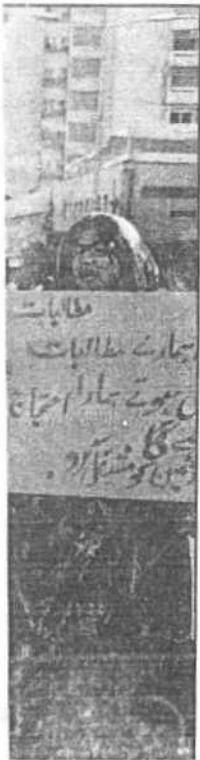 مطالبات
ہمارے مطالبات
ہوتے ہمارا احتجاج
گا
کو مستقل کرو.